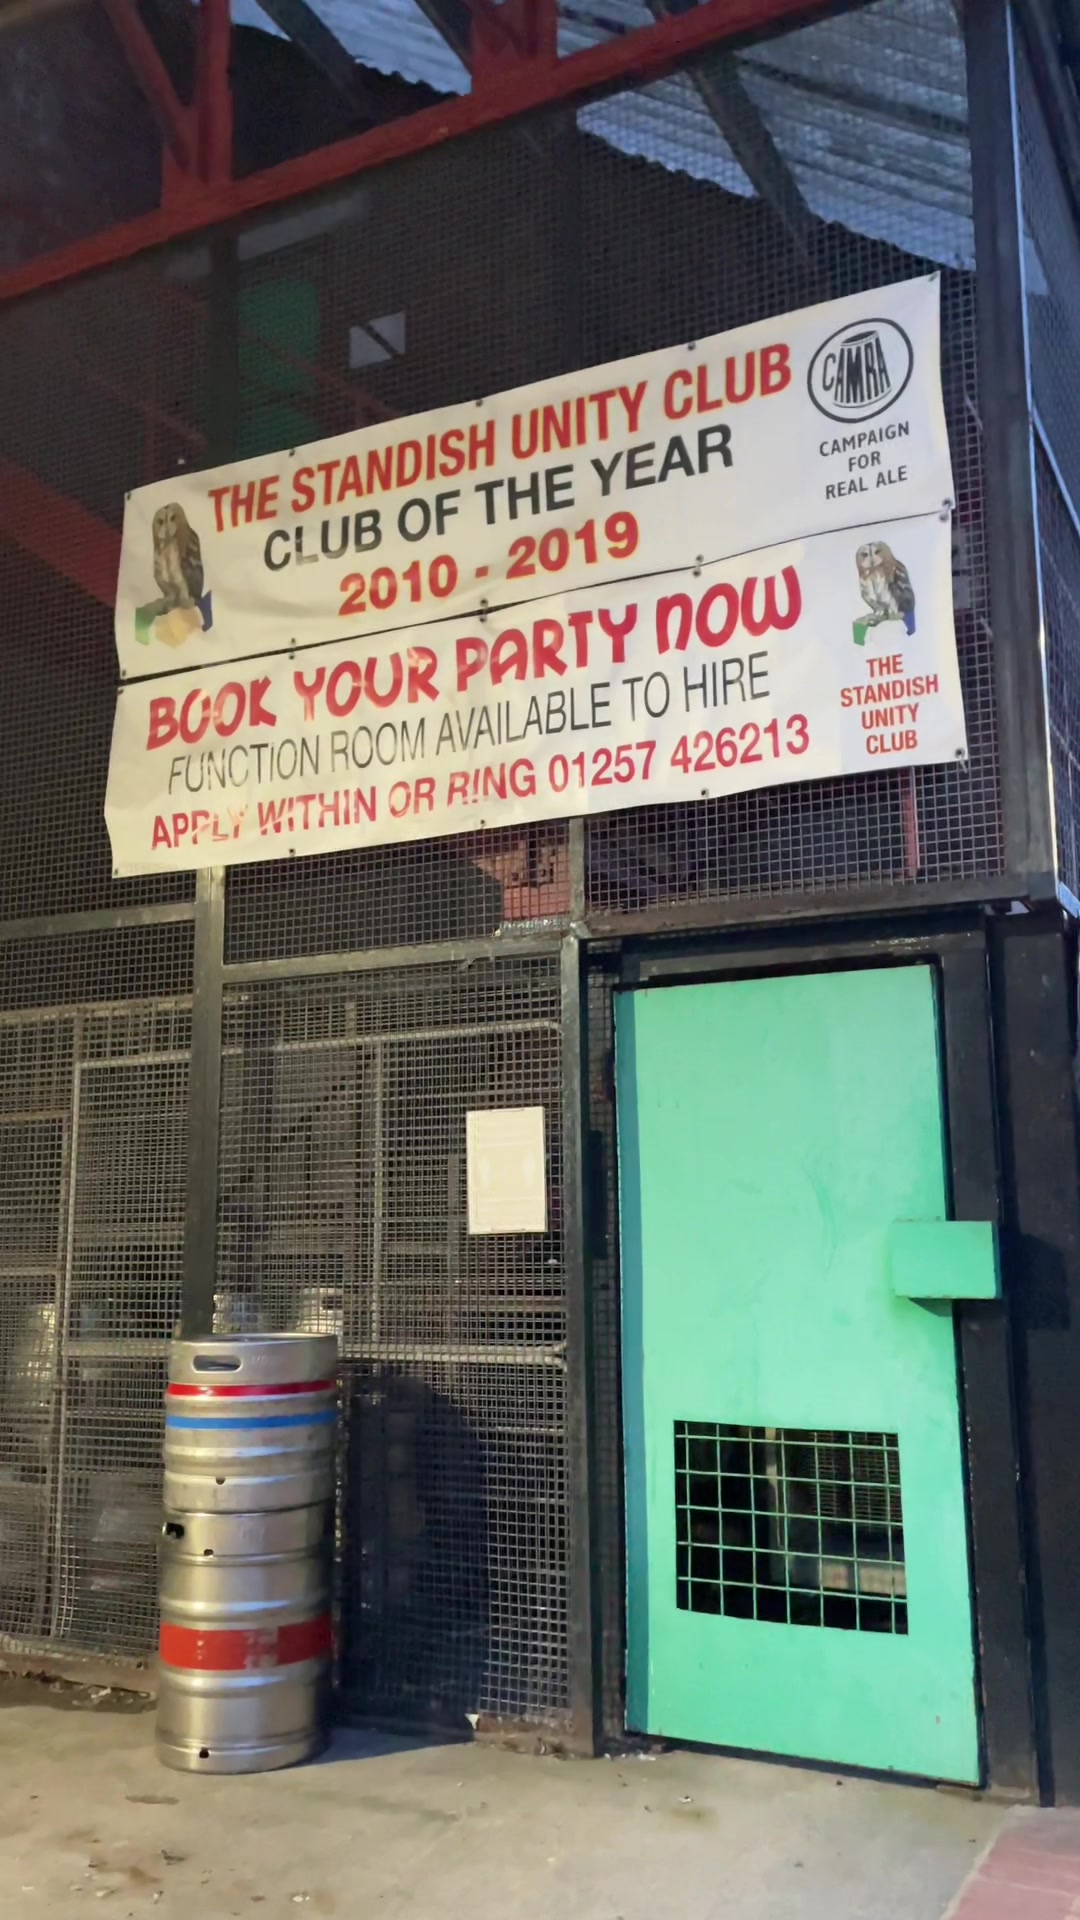 THE STANDISH UNITY CLUB
CLUB OF THE YEAR
2010 - 2019
CAMRA
CAMPAIGN
FOR
REAL ALE
BOOK YOUR PARTY NOW
FUNCTION ROOM AVAILABLE TO HIRE
APPLY WITHIN OR RING 01257 426213
THE
STANDISH
UNITY
CLUB